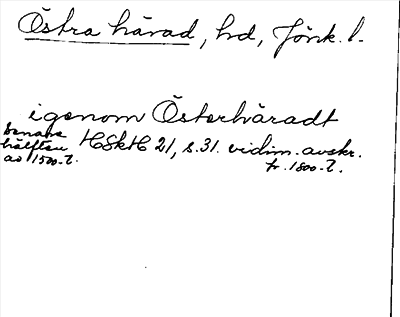 Östra härad, hd, Jönk. l.
igenom Österhäradt
senare
hälften HSkH 21, s. 31. vidim. avskr.
av 1500-t. fr. 1800-t.